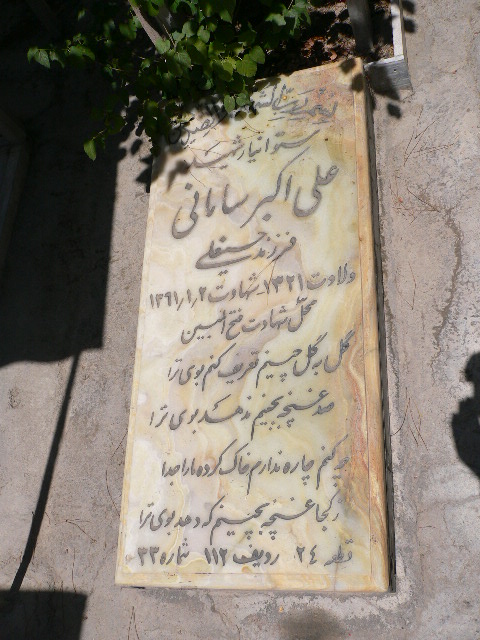 ستوانیار شهید
علی اکبر سامانی
فرزند حسینعلی
ولادت ۱۳۲۱ شهادت ۱۳۶۱٫۱٫۲
محل شهادت فتح المبین
گل به گل چینم تعریف کنم بوی ترا
صد غنچه بچینم ندهد بوی ترا
چه کنم چاره ندارم خاک کرده مارا جدا
زکجا غنچه بچینم که دهد بوی ترا
قطعه ۲۴ ردیف ۱۱۲ شماره ۳۳